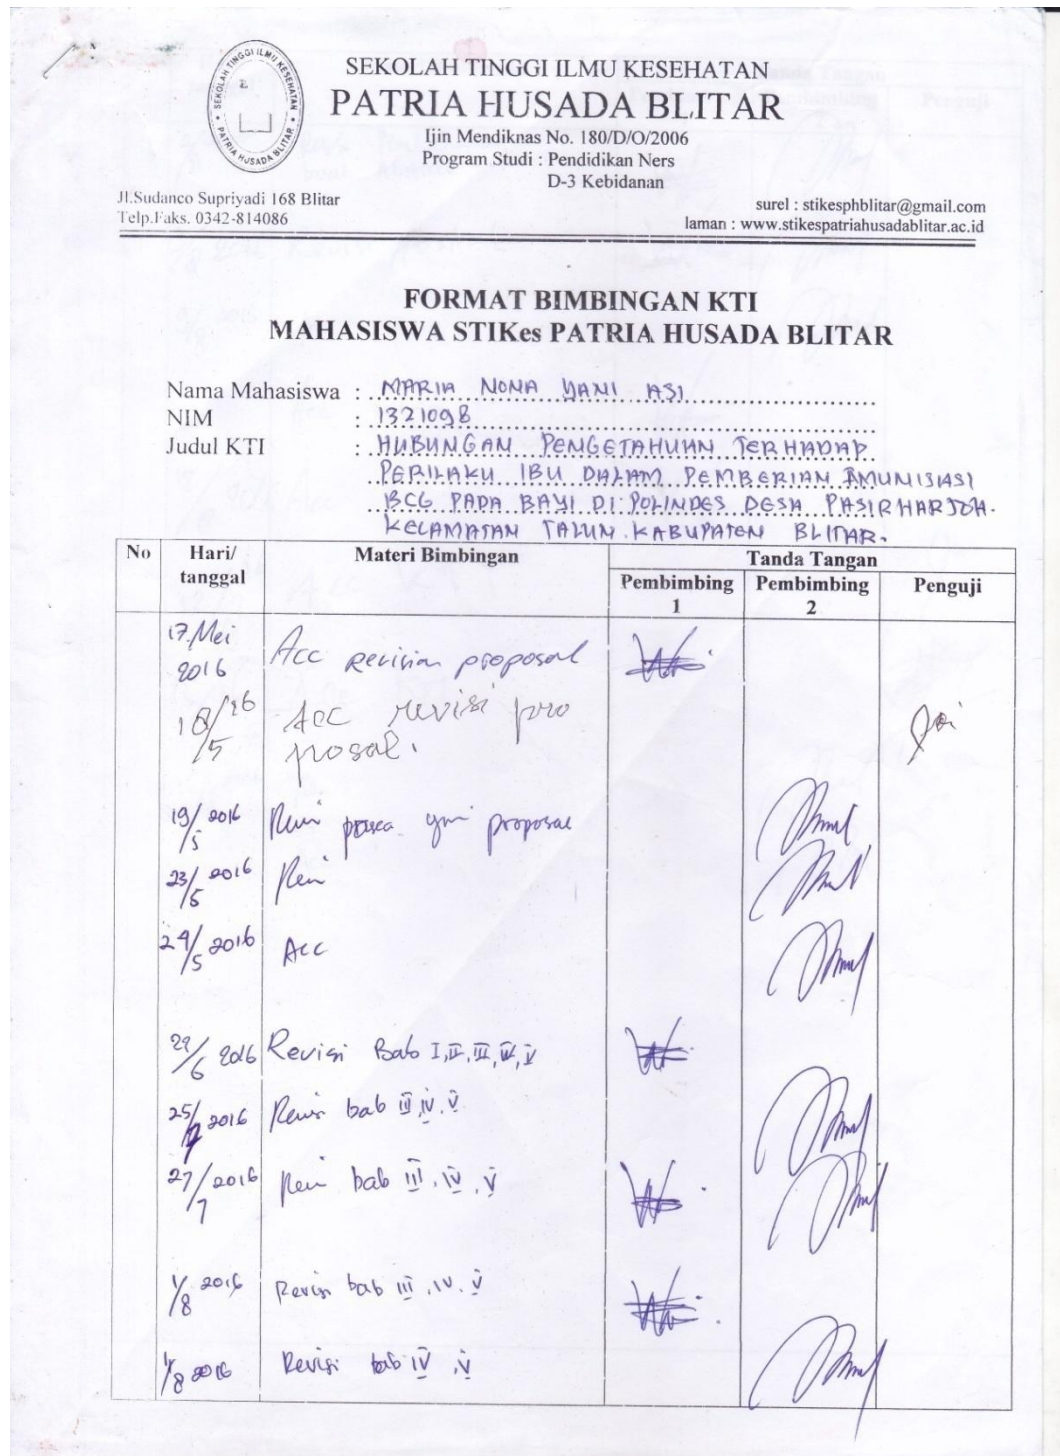 SEKOLAH TINGGI ILMU KESEHATAN
PATRIA HUSADA BLITAR
SEKOLAH TINGGI ILMU KESEHATAN
PATRIA HUSADA BLITAR
Ijin Mendiknas No. 180/D/O/2006
Program Studi : Pendidikan Ners
D-3 Kebidanan
Jl.Sudanco Supriyadi 168 Blitar
Telp.Faks. 0342-814086
surel : stikesphblitar@gmail.com
laman : www.stikespatriahusadablitar.ac.id
FORMAT BIMBINGAN KTI
MAHASISWA STIKes PATRIA HUSADA BLITAR
Nama Mahasiswa : MARIA NONA YANI ASI
NIM : 1321098
Judul KTI : HUBUNGAN PENGETAHUAN TERHADAP
PERILAKU IBU DALAM PEMBERIAN IMUNISIASI
BCG PADA BAYI DI POLINDES DESA PASIRHARJOH.
KECAMATAN TALUN KABUPATEN BLITAR.
No Hari/ tanggal Materi Bimbingan Tanda Tangan
Pembimbing 1 Pembimbing 2 Penguji
17.Mei 2016 Acc revisian proposal
18/5 '16 Acc revisi pro
posal.
19/5 2016 proposal
23/5 2016
24/5 2016 Acc
2016 Revisi Bab I, II, III, IV, V
25/7 2016 Revisi bab III, IV, V
27/7 2016 bab III, IV, V
1/8 2016 Revisi bab III, IV, V
1/8 2016 Revisi bab IV, V